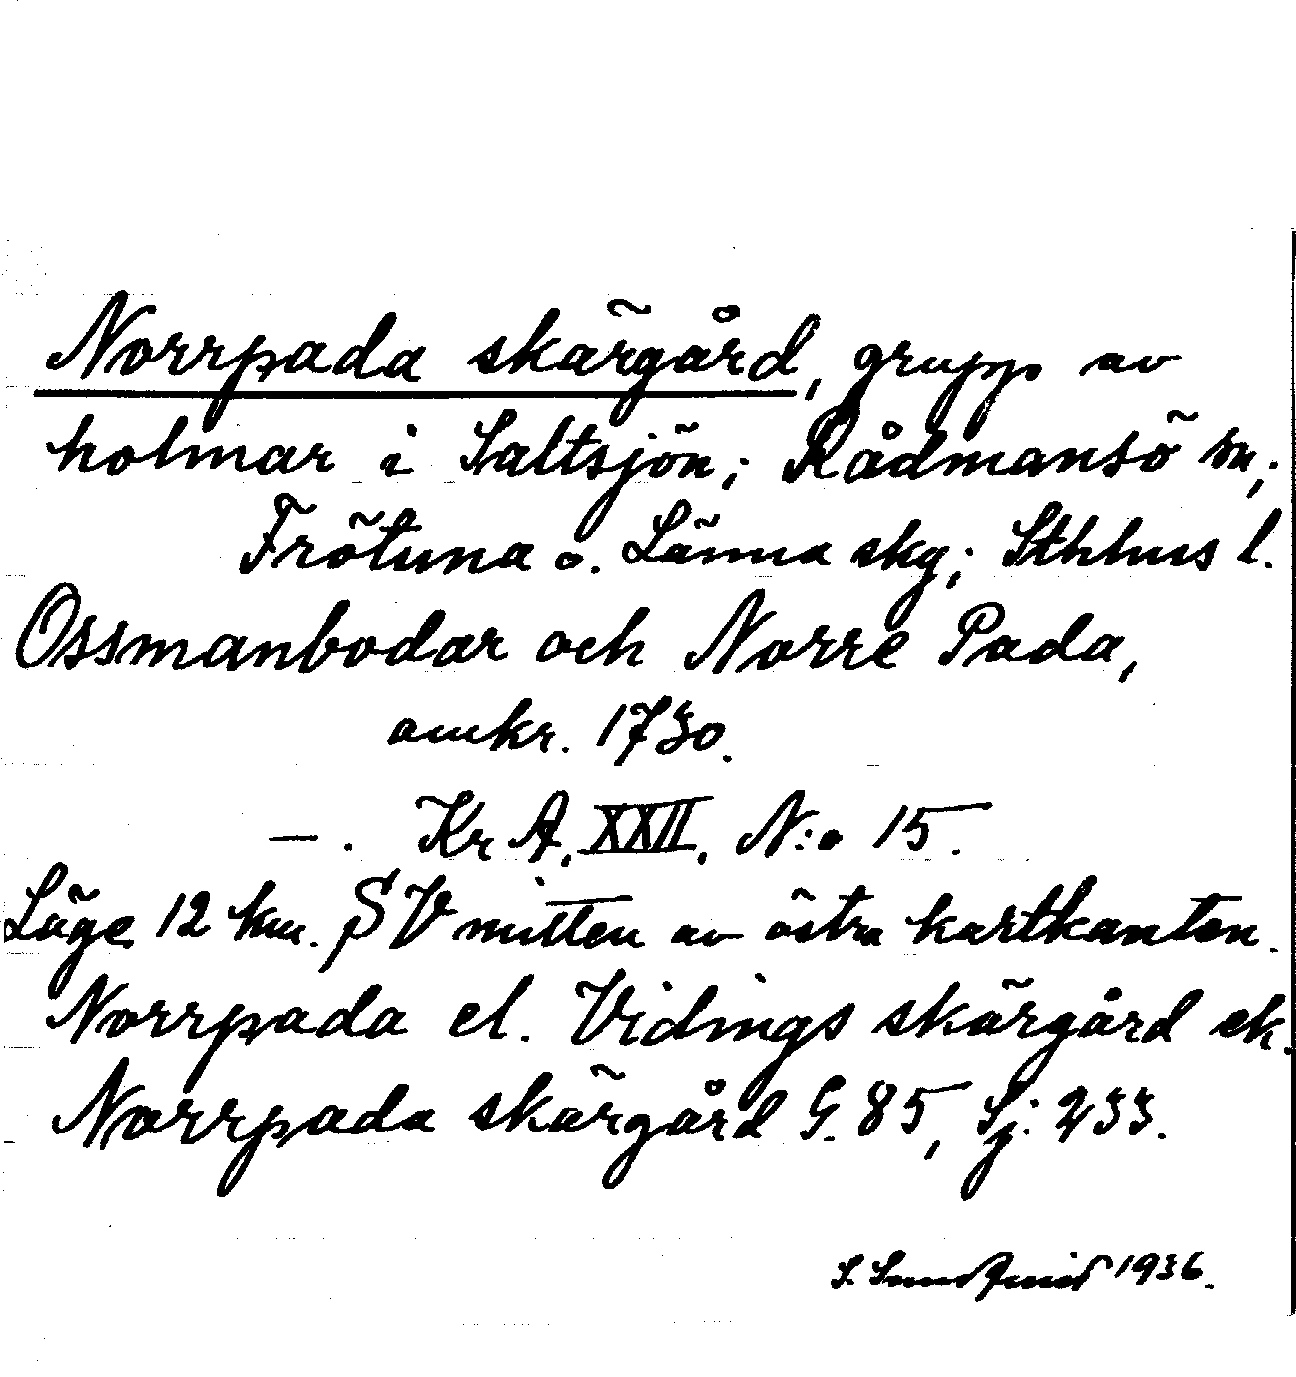 Norrpada skärgård, grupp av
holmar i Saltsjön; Rådmansö sn;
Frötuna o. Länna skg; Sthlms l.
Ossmanbodar och Norre Pada,
omkr. 1730.
— . Kr A, XXII, N:o 15.
Läge 12 km. SV mitten av östra kartkanten.
Norrpada el. Vidings skärgård ek.
Norrpada skärgård G. 85, Sj: 233.
S. 1936.